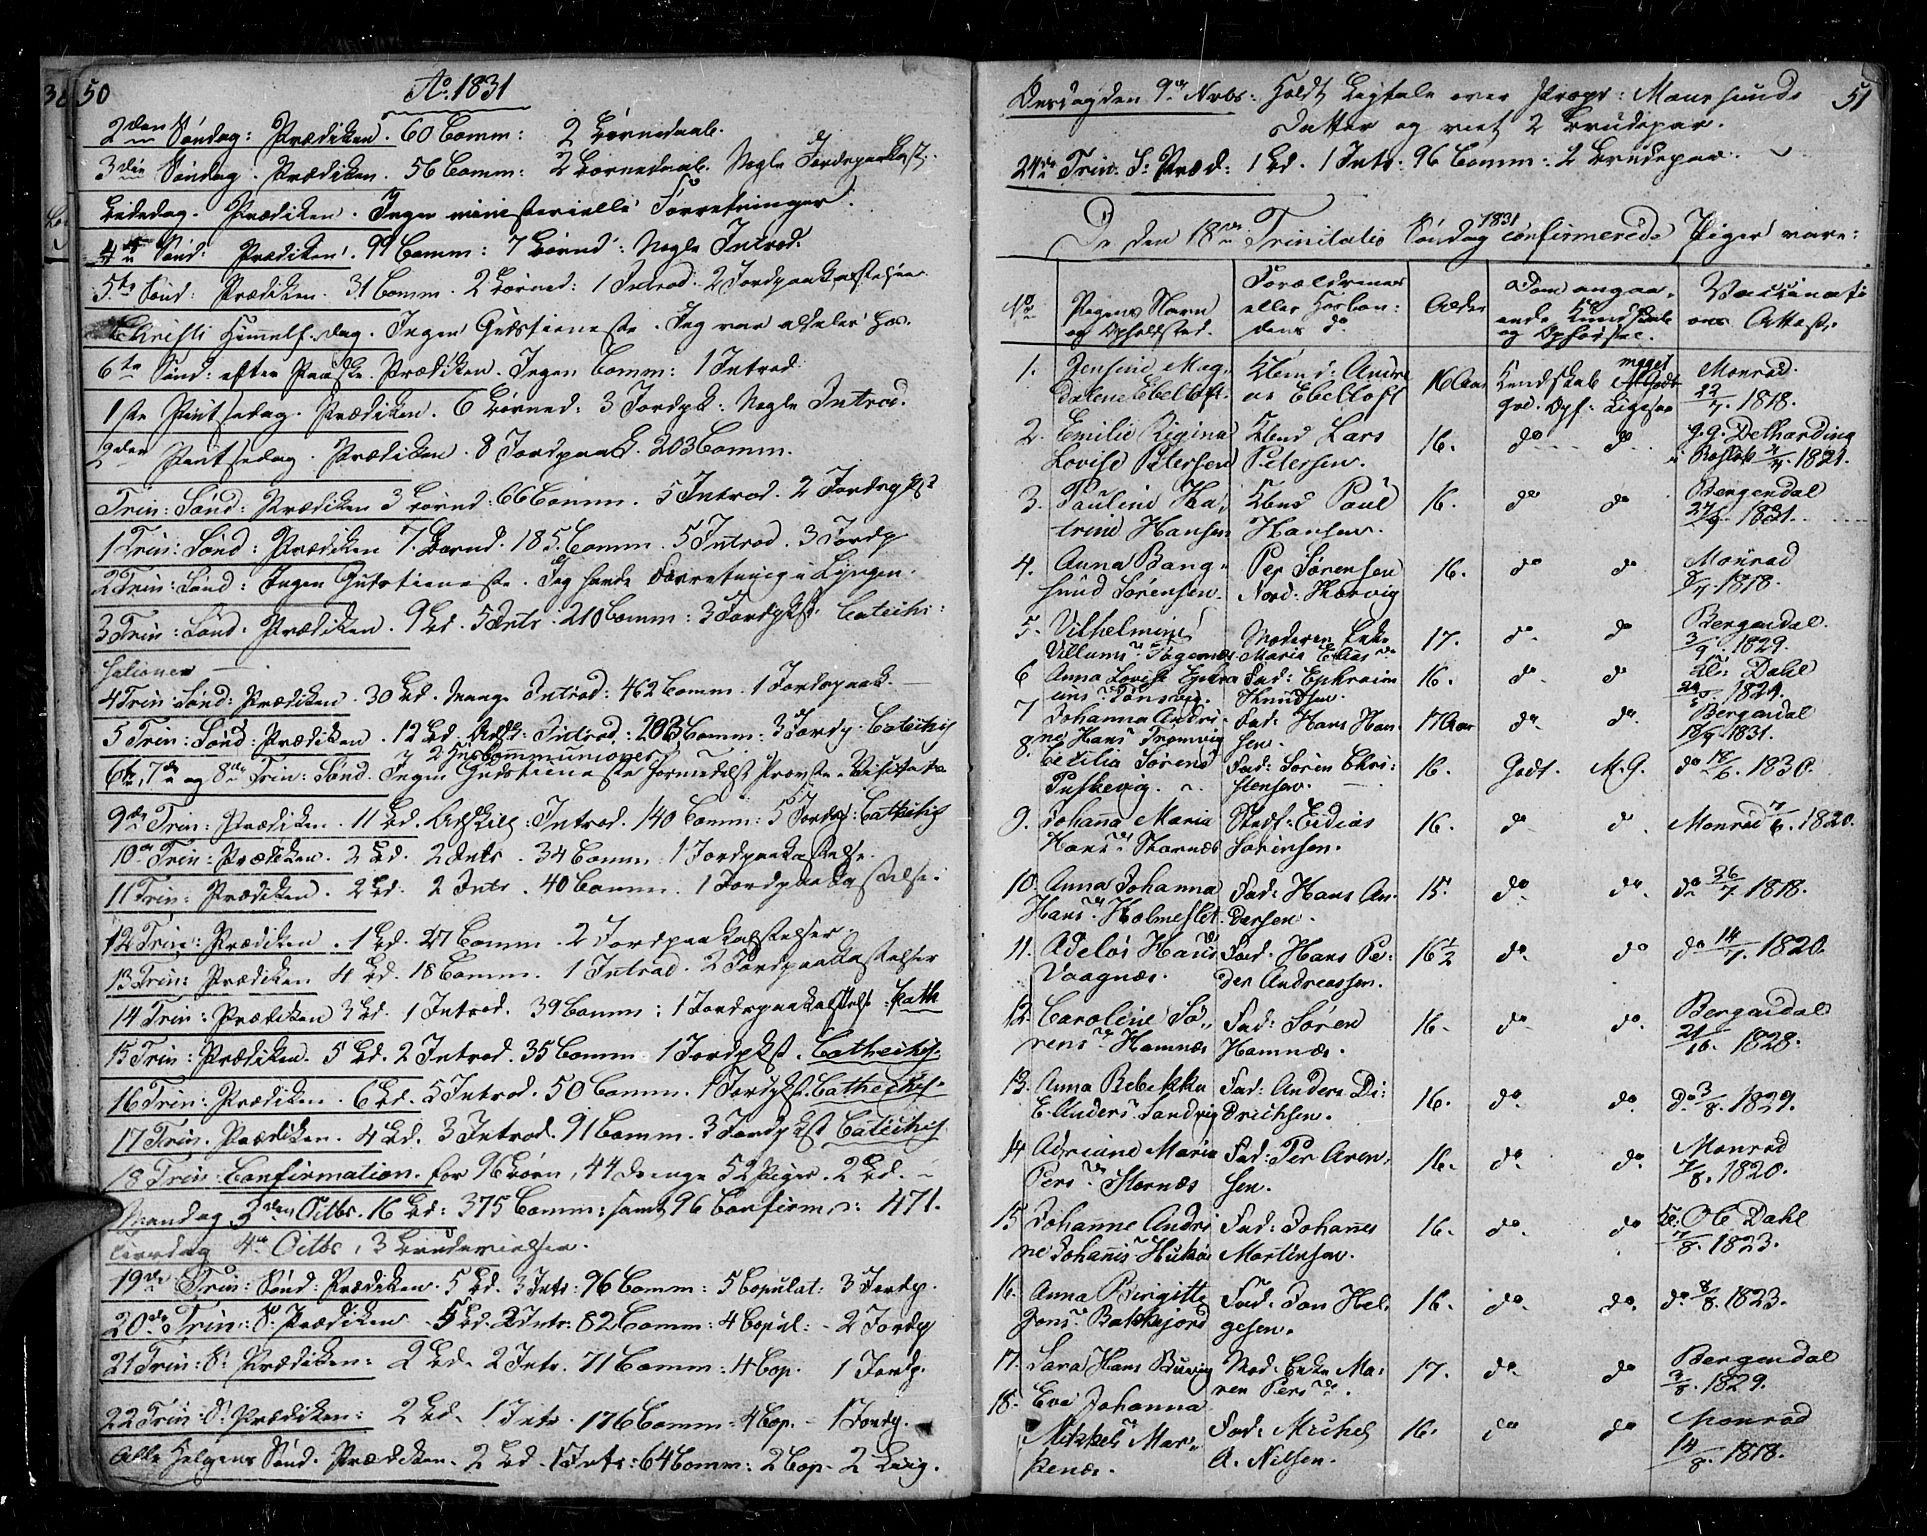 50
Ao 1831
2den Søndag: Prædiken. 60 Comm: 2 Børnedaab.
3die Søndag. Prædiken. 56 Comm: 2 Børnedaab. Nogle Jordpaakast.
Bededag. Prædiken. Ingen ministerielle Forretninger.
4de Sønd: Prædiken. 99 Comm: 7 Børned: Nogle Introd.
5te Sønd: Prædiken. 31 Comm. 2 Børned: 1 Introd. 2 Jordpaakastelser.
Christi Himmelf. dag. Ingen Gudstieneste. Jeg var
6te Sønd: efter Paaske. Prædiken. Ingen Comm: 1 Introd.
1ste Pintsedag. Prædiken. 6 Børned: 3 Jordpk: Nogle Introd.
2den Pintsedag. Prædiken. 8 Jordpaak. 203 Comm.
Trin: Sønd: Prædiken 3 Børned: 66 Comm. 5 Introd. 2 Jordpkst
1 Trin: Sønd: Prædiken 7 Børned. 185 Comm. 5 Introd. 3 Jordp
2 Trin: Sønd: Ingen Gudstieneste. Jeg havde Forretning i Lyngen.
3 Trin: Sønd: Prædiken. 9 Bd. 5 Intr. 210 Comm: 3 Jordpkst. Catechi:
sationer
4 Trin: Sønd: Prædiken. 30 Bd. Mange Introd: 462 Comm. 1 Jordpaak.
5 Trin: Sønd: Prædiken. 12 Bd. Adsk: Introd. 203 Comm: 3 Jordp. Catechis
6te, 7de og 8de Trin: Sønd. Ingen Gudstieneste formedelst Provste-Visitats
9de Trin: Prædiken. 11 Bd. Adskill: Introd. 140 Comm: 5 Jordp: Catechis
10de Trin: Prædiken. 2 Bd. 2 Intr. 34 Comm. 1 Jordpaakastelse.
11 Trin: Prædiken. 2 Bd. 2 Intr. 40 Comm. 1 Jordpaakastelse.
12 Trin: Prædiken. 1 Bd. 27 Comm. 2 Jordpaakastelser.
13 Trin: Prædiken 4 Bd. 18 Comm. 1 Introd. 2 Jordpaakastelser
14 Trin: Prædiken 3 Bd. 1 Introd. 39 Comm: 1 Jordpaakastelse Cath
15 Trin: Prædiken. 5 Bd. 2 Introd. 35 Comm. 1 Jordpkst. Cathechis.
16 Trin: Prædiken. 6 Bd. 5 Introd. 50 Comm. 1 Jordpkst. Cathechis.
17 Trin. Prædiken. 4 Bd. 3 Introd. 91 Comm. 3 Jordpkst Catechis.
18 Trin: Confirmation. for 96 Børn, 44 Drenge 52 Piger. 2 Bd.
Mandag 3den Octbr. 16 Bd: 375 Comm: samt 96 Confirm: 471.
Tirsdag 4de Octbr, 3 Brudevielser.
19de Trin: Sønd: Prædiken. 5 Bd. 3 Intr: 96 Comm: 5 Copulat: 3 Jordp.
20de Trin: S: Prædiken 5 Bd. 2 Intr: 82 Comm: 4 Copul: 2 Jordp
21 Trin: S: Prædiken: 2 Bd. 2 Intr. 71 Comm: 4 Cop. 1 Jordp.
22 Trin: S: Prædiken: 2 Bd. 1 Intr. 176 Comm: 4 Cop. 1 Jordp.
Alle Helgens Sønd. Prædiken. 2 Bd. 1 Intr: 64 Comm: 2 Cop. 2
51
Onsdagden 9de Nvbr: holdt Ligtale over Propr: Maursunds
Datter og viet 2 Brudepar.
24de Trin: S: Præd: 1 Bd. 1 Intr: 96 Comm: 2 Brudepar.
De den 18de Trinitatis Søndag 1831 confirmerede Piger vare:
No Pigens Navn og Opholdsted. Forældrenes eller Hosbondens do Alder Dom angaaende Kundskab og Opførsel. Vaccinations Attest.
1. Jensine Magdalene Ebeltoft. Kbmd: Andreas Ebeltoft 16 Aar Kundskab meget god. Opf: Ligesaa Monrad. 22/7. 1818.
2. Emilie Regina Lovise Petersen Kbmd Lars Petersen. 16. do do G. G. Detharding i Rostok 1821.
3. Pauline Katrine Hansen Kbmd Paul Hansen. 16. do do Bergendal 27/9. 1831.
4. Anna Bangsund Sørensen. Per Sørensen Nord: Korvig 16. do do Monrad 8/7. 1818.
5. Vilhelmine Villumsdr Moderen Enke Maria Eliasdr 17. do do Bergendal. 3/9. 1829.
6 Anna Lovise Ephraimsdr Tønsvig. Fad: Ephraim Knudsen. 16. do do Kl: Dahl 1824.
7 Johanna Andrine Hansdr Tromvig Fad: Hans Hansen. 17 Aar do do Bergendal 18/9. 1831.
8. Cecilia Sørensdr Puskevig. Fad: Søren Christensen. 16. Godt. M. G. do 16/6. 1830.
9. Johanna Maria Hansdr Stornæs Sørensen. 16. do do Monrad 7/6. 1820.
10. Anna Johanna Hansdr Holmeslet. Fad: Hans Andersen. 15. do do do 26/7. 1818.
11. Adelos Hansdr Vaagnæs. Fad: Hans Peder Andreassen. 16½ do do do 14/7. 1820.
12. Caroline Sørensdr Hamnæs Fad: Søren Hamnæs. 16. do do Bergendal 21/10. 1828.
13. Anna Rebekka E. Andersdr Sandvig Fad: Anders Didrichsen. 16. do do do 3/8. 1829.
14 Adriane Maria Persdr Stornæs Fad: Per Arensen. 16. do do Monrad 7/8. 1820.
15 Johanne Andrine Johansdr Fad: Johannes Martinsen. 16. do do Kl: Ole Dahl 7/8. 1823.
16. Anna Birgitte Jonsdr Bakkejord Fad: Jon Helgesen. 16. do do do 8/8. 1823.
17. Sara Hansdr Buvig Mod: Enke Maren Persdr. 17. do do Bergendal 3/8. 1829.
18. Eva Johanna Mikkelsdr Fad: Michel A. Nilsen. 16. do do Monrad 14/8. 1818.